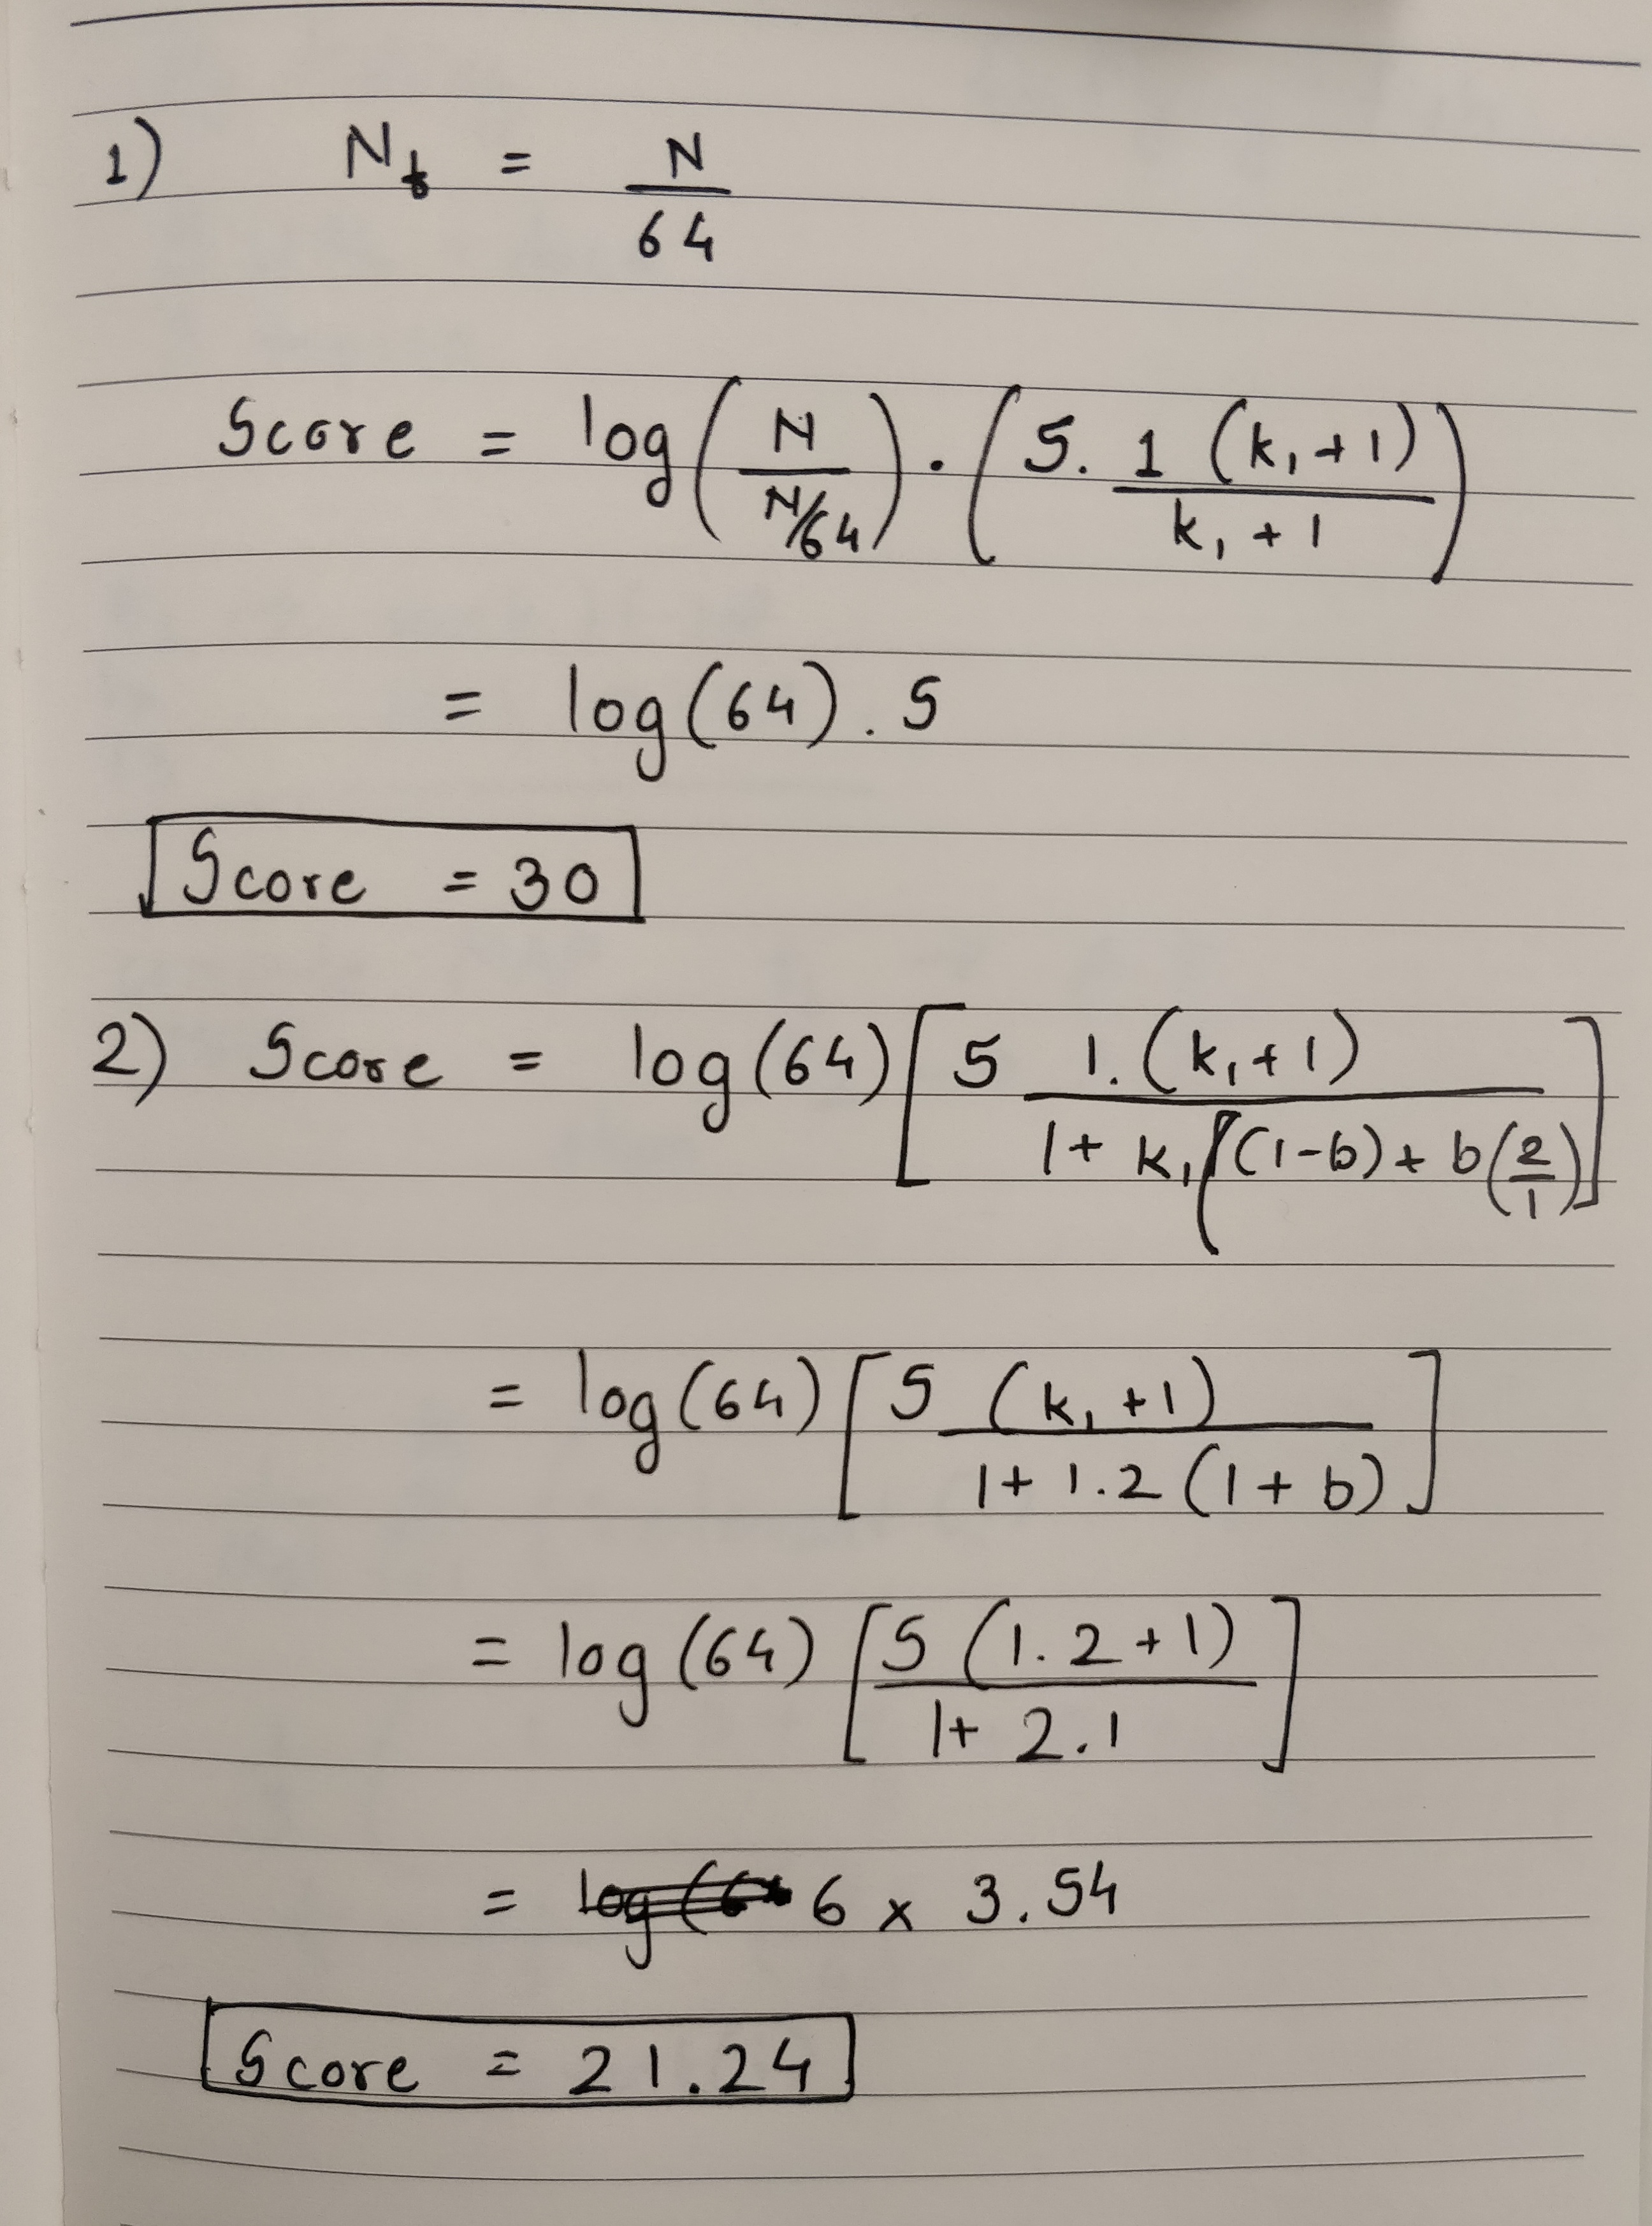 1) N_t = N/64
Score = log(N/(N/64)) . (5. 1 (k₁+1)/(k₁+1))
= log(64) . 5
Score = 30
2) Score = log(64)[5 1.(k₁+1)/(1+k₁((1-b)+b(2/1)]
= log(64)[5 (k₁+1)/(1+1.2(1+b)]
= log(64)[5(1.2+1)/(1+2.1)]
= 6 x 3.54
Score = 21.24